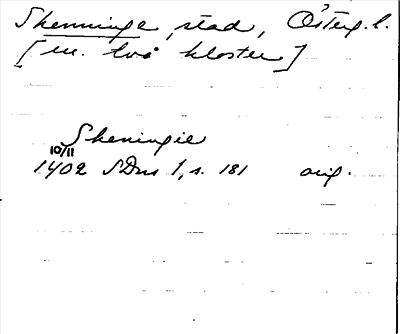 Skenninge, stad, Österg. l.
[m. två kloster]
Skeningie
10/11
1402 SDns 1, s. 181 orig.